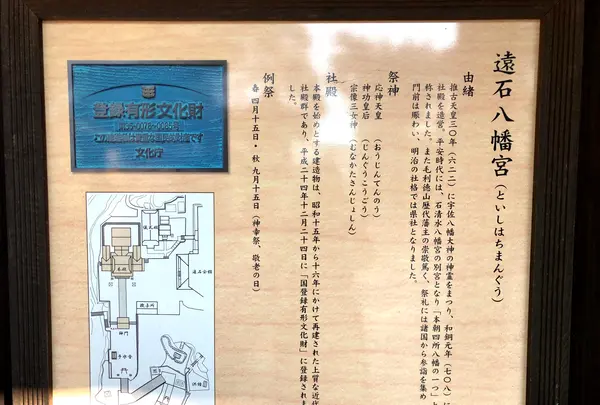 遠石八幡宮（といしはちまんぐう）
由緒
推古天皇三〇年（六二二）に宇佐八幡大神の神霊をまつり、和銅元年（七〇八）に
社殿を造営。平安時代には、石清水八幡宮の別宮となり「本朝四所八幡の一つ」と
称されました。また毛利徳山歴代藩主の崇敬篤く、祭礼には諸国から参詣を集め
門前は賑わい、明治の社格では県社となりました。
祭神
応神天皇（おうじんてんのう）
神功皇后（じんぐうこうごう）
宗像三女神（むなかたさんじょしん）
社殿
本殿を始めとする建造物は、昭和十五年から十六年にかけて再建された上質な近代
社殿群であり、平成二十四年十二月二十四日に「国登録有形文化財」に登録されま
した。
例祭
春 四月十五日・秋 九月十五日（神幸祭、敬老の日）
登録有形文化財
この建造物は貴重な国民的財産です
文化庁
遠石会館
神門
手水舎